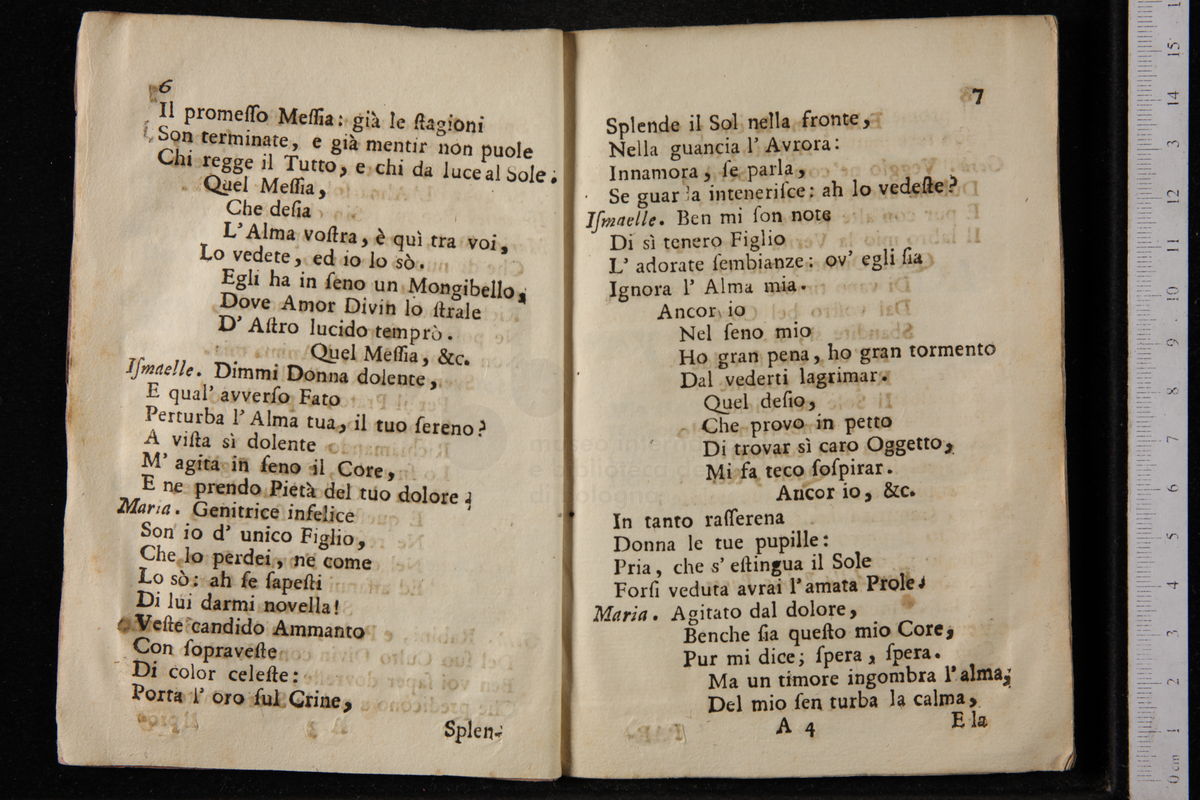 6
Il promeſſo Meſſia: già le ſtagioni
Son terminate, e già mentir non puole
Chi regge il Tutto, e chi da luce al Sole.
Quel Meſſia,
Che deſia
L'Alma voſtra, è quì tra voi,
Lo vedete, ed io lo sò.
Egli ha in ſeno un Mongibello,
Dove Amor Divin lo ſtrale
D'Aſtro lucido temprò.
Quel Meſſia, &c.
Iſmaelle. Dimmi Donna dolente,
E qual' avverſo Fato
Perturba l'Alma tua, il tuo ſereno?
A viſta sì dolente
M' agita in ſeno il Core,
E ne prendo Pietà del tuo dolore.
Maria. Genitrice infelice
Son io d' unico Figlio,
Che lo perdei, ne come
Lo sò: ah ſe ſapeſti
Di lui darmi novella!
Veſte candido Ammanto
Con ſopraveſte
Di color celeſte:
Porta l' oro ſul Crine,
Splen-
7
Splende il Sol nella fronte,
Nella guancia l' Avrora:
Innamora, ſe parla,
Se guarda inteneriſce: ah lo vedeſte?
Iſmaelle. Ben mi ſon note
Di sì tenero Figlio
L' adorate ſembianze: ov' egli ſia
Ignora l' Alma mia.
Ancor io
Nel ſeno mio
Ho gran pena, ho gran tormento
Dal vederti lagrimar.
Quel deſio,
Che provo in petto
Di trovar sì caro Oggetto,
Mi fa teco ſoſpirar.
Ancor io, &c.
In tanto raſſerena
Donna le tue pupille:
Pria, che s' eſtingua il Sole
Forſi veduta avrai l'amata Prole.
Maria. Agitato dal dolore,
Benche ſia queſto mio Core,
Pur mi dice; ſpera, ſpera.
Ma un timore ingombra l'alma,
Del mio ſen turba la calma,
A 4
E la